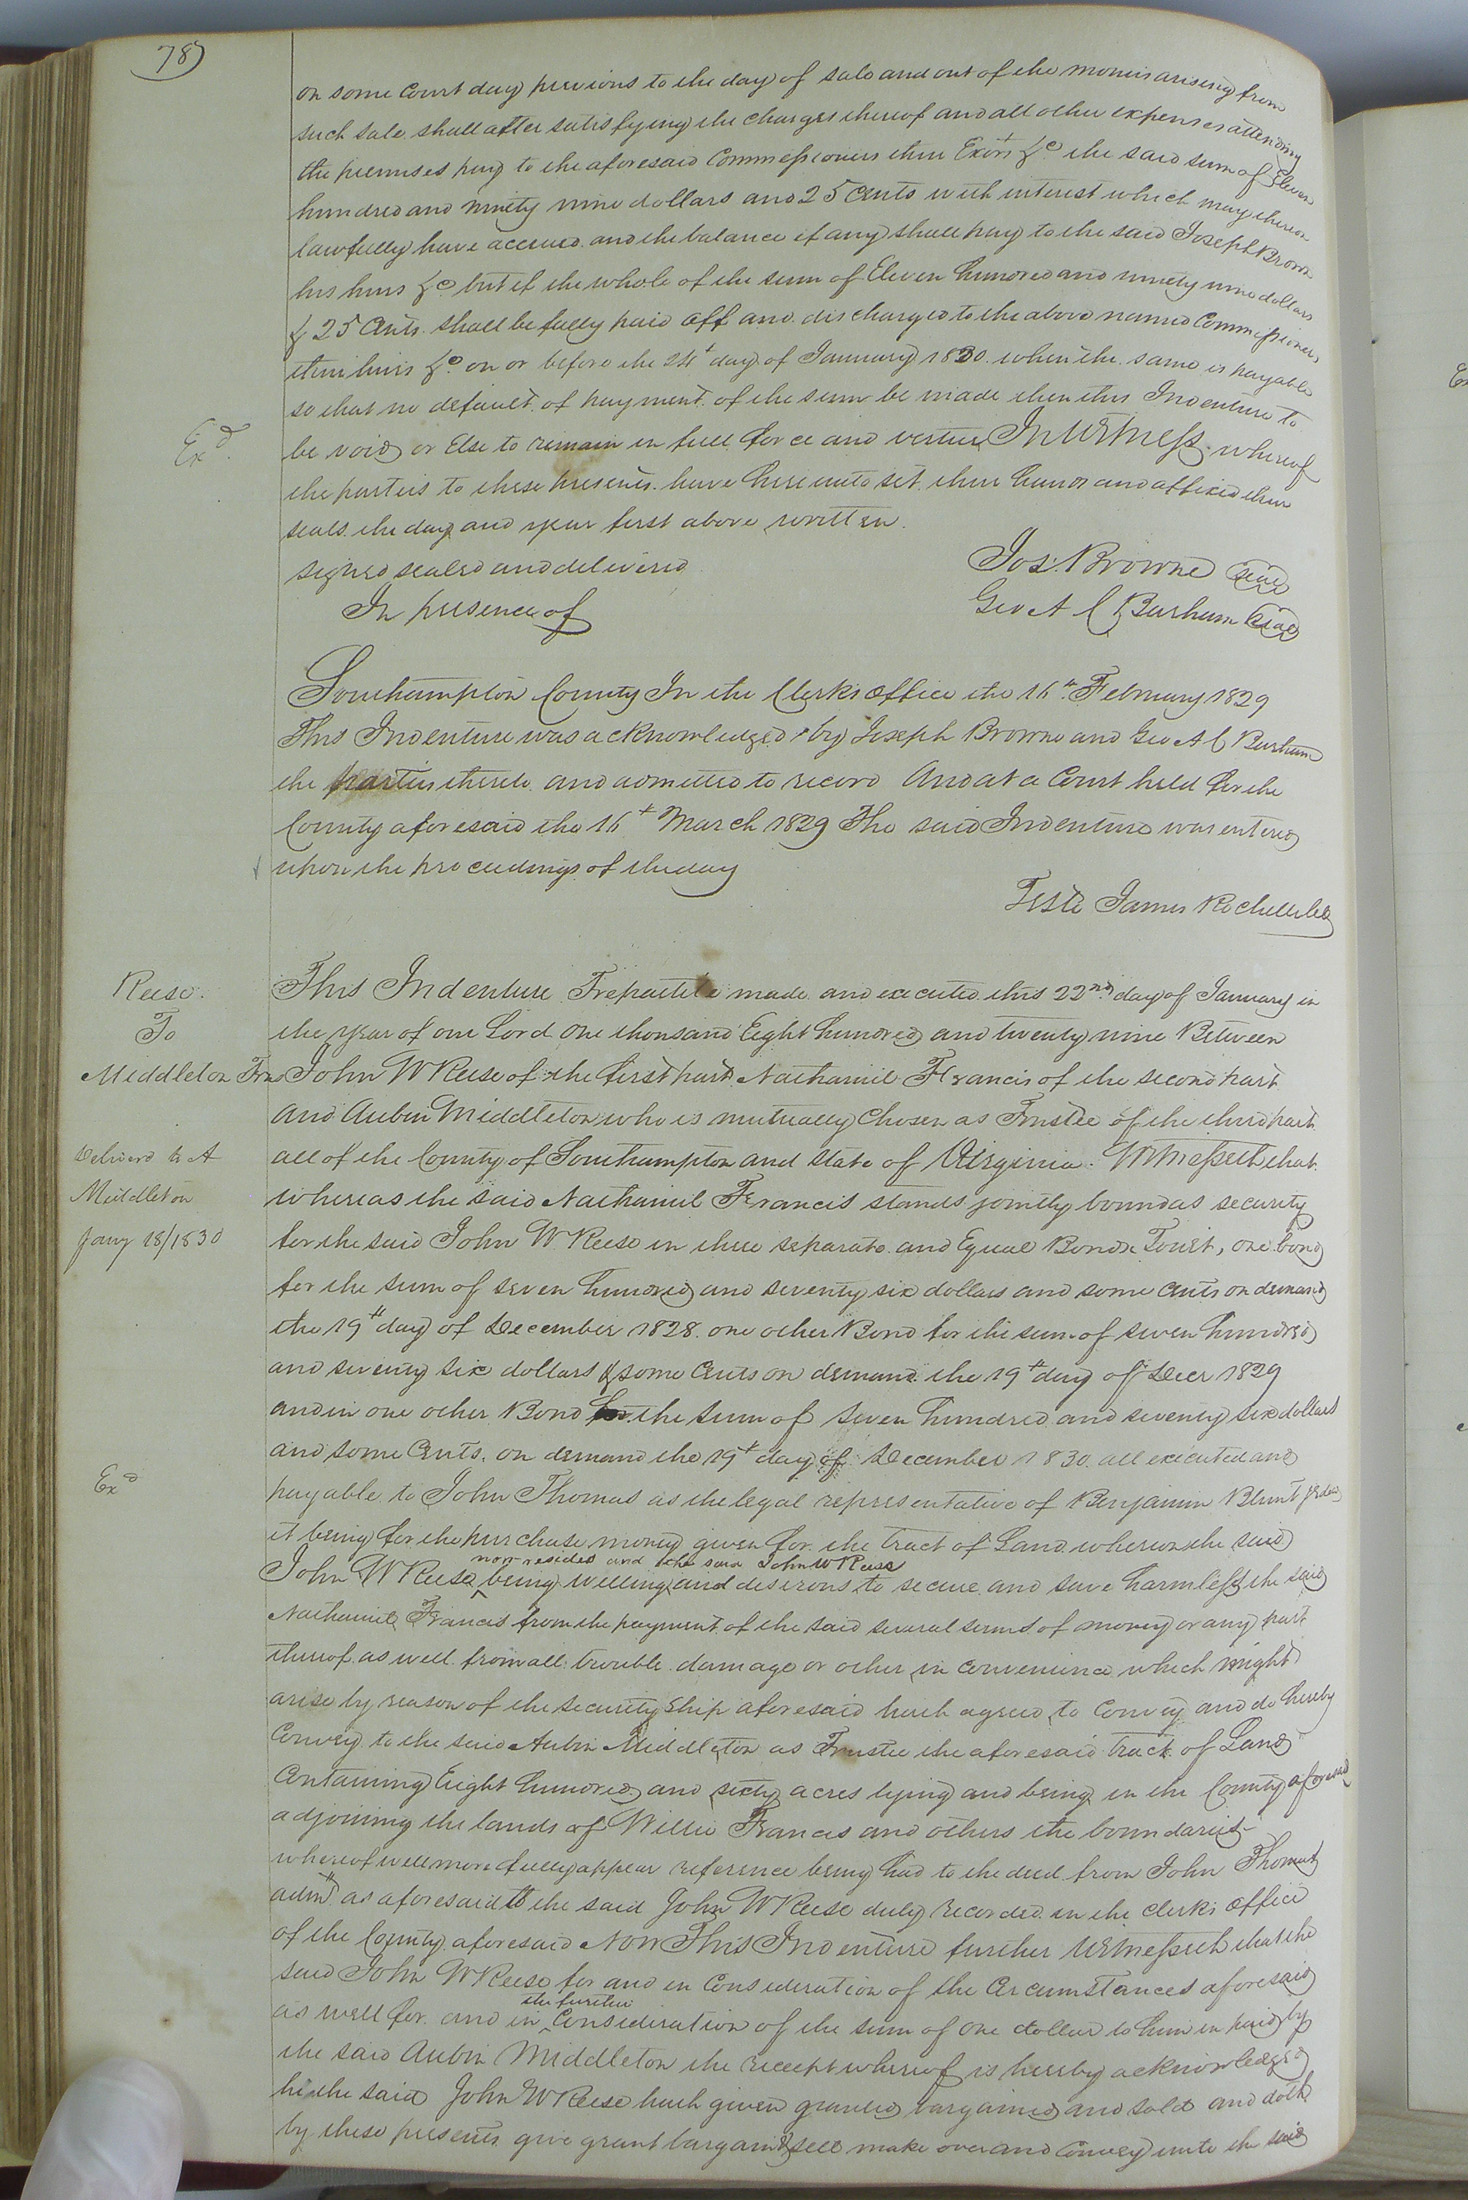 78
on some Court day previous to the day of sale and out of the monies arising from
such sale shall after satisfying the charges thereof and all other expenses attending
the premises pay to the aforesaid Commissioners their Exors &c the said sum of Eleven
hundred and ninety nine dollars and 25 Cents with interest which may thereon
lawfully have accrued and the balance if any shall pay to the said Joseph Browne
his heirs &c but if the whole of the sum of Eleven hundred and ninety nine dollars
& 25 Cents shall be fully paid off and discharged to the above named Commissioners,
their heirs &c on or before the day of January 1830 when the same is payable
so that no default of payment of the sum be made then this Indenture to
Exd.
be void or Else to remain in full force and virtue In Witness whereof
the parties to these presents have hereunto set their hands and affixed their
seals the day and year first above written.
Signed sealed and delivered
In presence of
Jos: Browne Seal
Geo A C Barham Seal
Southampton County In the Clerk's office the 16th February 1829
This Indenture was acknowledged by Joseph Browne and Geo A C Barham
the parties thereto and admitted to record And at a Court held for the
County aforesaid the 16t March 1829 The said Indenture was entered
upon the proceedings of the day
Teste James Rochelle
Reese.
To
Middleton Trs
This Indenture Trepartite made and executed this 22nd day of January in
the year of our Lord One thousand Eight hundred and twenty nine Between
John W Reese of the first part Nathaniel Francis of the second part
And Aubin Middleton who is mutually Chosen as Trustee of the third part
Delivered to A
Middleton
Jany 18/1830
all of the County of Southampton and State of Virginia. Witnesseth that
whereas the said Nathaniel Francis stands jointly bound as security
for the said John W Reese in three separate and Equal Bonds To wit, one bond
for the sum of seven hundred and seventy six dollars and some Cents on demand
the 19th day of December 1828. one other Bond for the sum of seven hundred
and seventy six dollars & some Cents on demand the 19t day of Decr 1829
and in one other Bond for the sum of seven hundred and seventy six dollars
and some Cents. on demand the 19t day of December 1830. all executed and
Exd
payable to John Thomas as the legal representative of Benjamin Blunt
it being for the purchase money given for the tract of Land whereon the said
now resides and the said John W Reese
John W Reese being willing and desirous to secure and save harmless the said
Nathaniel Francis from the payment of the said several sums of money or any part
thereof as well from all trouble damage or other in convenience which might
arise by reason of the security ship aforesaid hath agreed to Convey and do hereby
Convey to the said Aubin Middleton as Trustee the aforesaid tract of Land
Containing Eight hundred and sixty acres lying and being in the County aforesaid
adjoining the lands of Willie Francis and others the boundaries
whereof will more fully appear reference being had to the deed from John Thomas
admr as aforesaid to the said John W Reese duly recorded in the clerk's office
of the County aforesaid Now This Indenture further Witnesseth that the
said John W Reese for and in Consideration of the Circumstances aforesaid
the further
as well for and in Consideration of the sum of One dollar to him in paid by
the said Aubin Middleton the receipt whereof is hereby acknowledged
he the said John W Reese hath given granted bargained and sold and doth
by these presents give grant bargain & sell make over and Convey unto the said